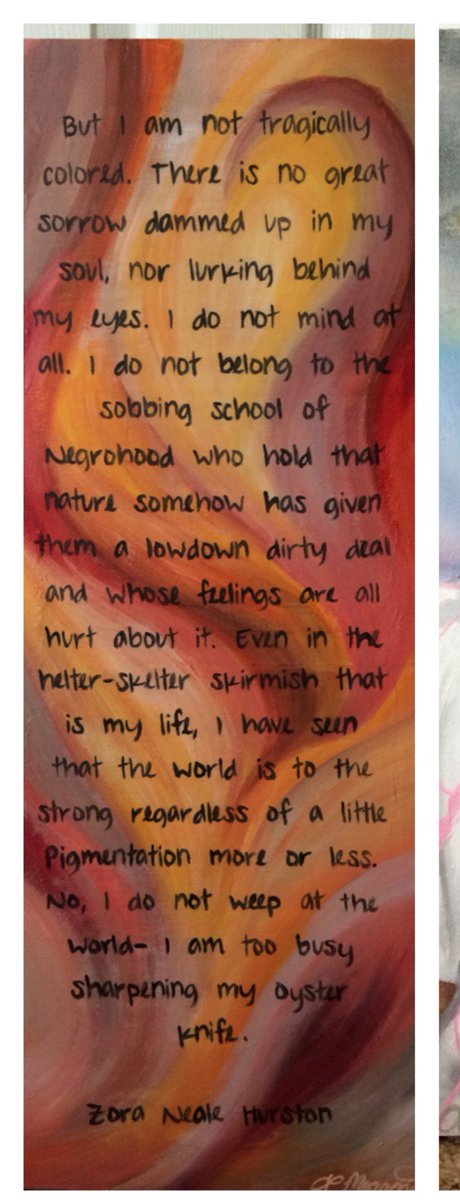 But I am not tragically
colored. There is no great
sorrow dammed up in my
soul, nor lurking behind
my eyes. I do not mind at
all. I do not belong to the
sobbing school of
Negrohood who hold that
nature somehow has given
them a lowdown dirty deal
and whose feelings are all
hurt about it. Even in the
helter-skelter skirmish that
is my life, I have seen
that the world is to the
strong regardless of a little
Pigmentation more or less.
No, I do not weep at the
world- I am too busy
sharpening my oyster
knife.
Zora Neale Hurston